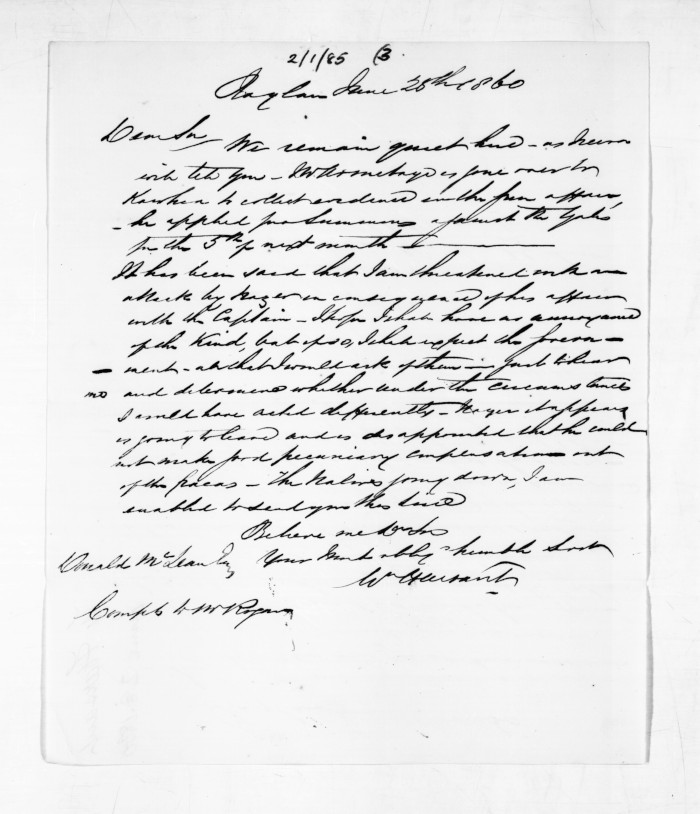 2/1/85 (3
Raglan June 28th 1860
Dear Sir
We remain quiet here - as
will tell you - Mr Armitage is gone over to
Kawhia to collect evidence in the affair,
- he applied for Summons against the
for the 5th of next month
It has been said that I am threatened with an
attack by in consequence of his affair
with the Captain - I hope I shall have no annoyance
of the Kind, but if so, I shall expect the Govern-
ment - all that I would ask of them - just to hear
and determine whether under the circumstances
I could have acted differently - it appears
is going to leave and is disappointed that he could
not make good pecuniary compensation out
of the fracas - The Natives going down, I am
enabled to send you this line
Believe me Dr Sir
Donald McLean Esq Your Most obdt humble Servt
Wm
Compts to Mr Rogan